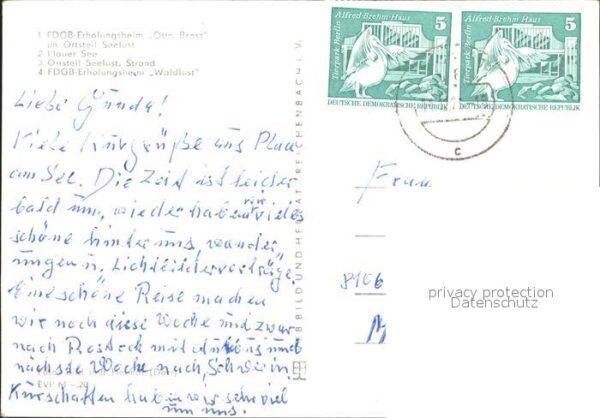 1 FDGB-Erholungsheim „Otto Bross"
im Ortsteil Seelust
2 Plauer See
3 Ortsteil Seelust, Strand
4 FDGB-Erholungsheim „Waldlust"
Liebe Gunda!
Viele Kurgrüße aus Plau
am See. Die Zeit ist leider
bald um, wieder haben wir vieles
schöne hinter uns, wander
ungen u. Lichtbildervorträge.
Eine schöne Reise machen
wir noch diese Woche und zwar
nach Rostock mit und
nächste Woche nach Schwerin.
EVP M -,20
Kurschatten haben wir sehr viel
um uns.
BILD UND HEIMAT REICHENBACH I. V.
Tierpark Berlin
Alfred-Brehm-Haus
5
DEUTSCHE DEMOKRATISCHE REPUBLIK
Tierpark Berlin
Alfred-Brehm-Haus
5
DEUTSCHE DEMOKRATISCHE REPUBLIK
c
Frau
8106
privacy protection
Datenschutz